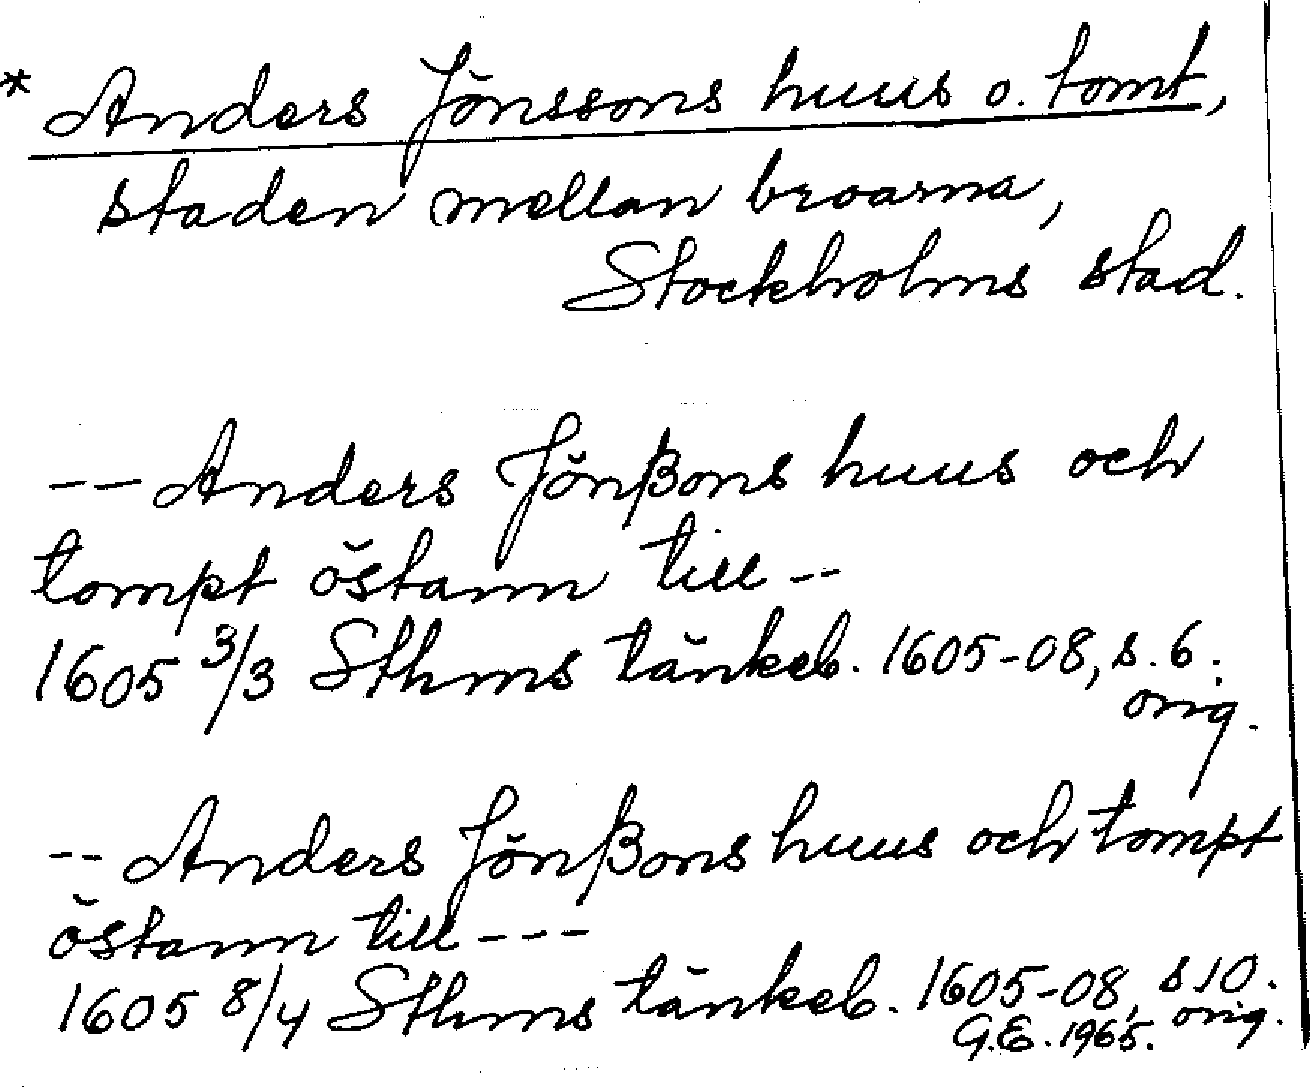 * Anders Jönssons huus o. tomt,
staden mellan broarna,
Stockholms stad.
-- Anders Jönßons huus och
tompt östann till --
1605 3/3 Sthms tänkeb. 1605-08, s. 6.
orig.
-- Anders Jönßons huus och tompt
östann till ---
1605 8/4 Sthms tänkeb. 1605-08, s 10.
orig.
G.E. 1965.